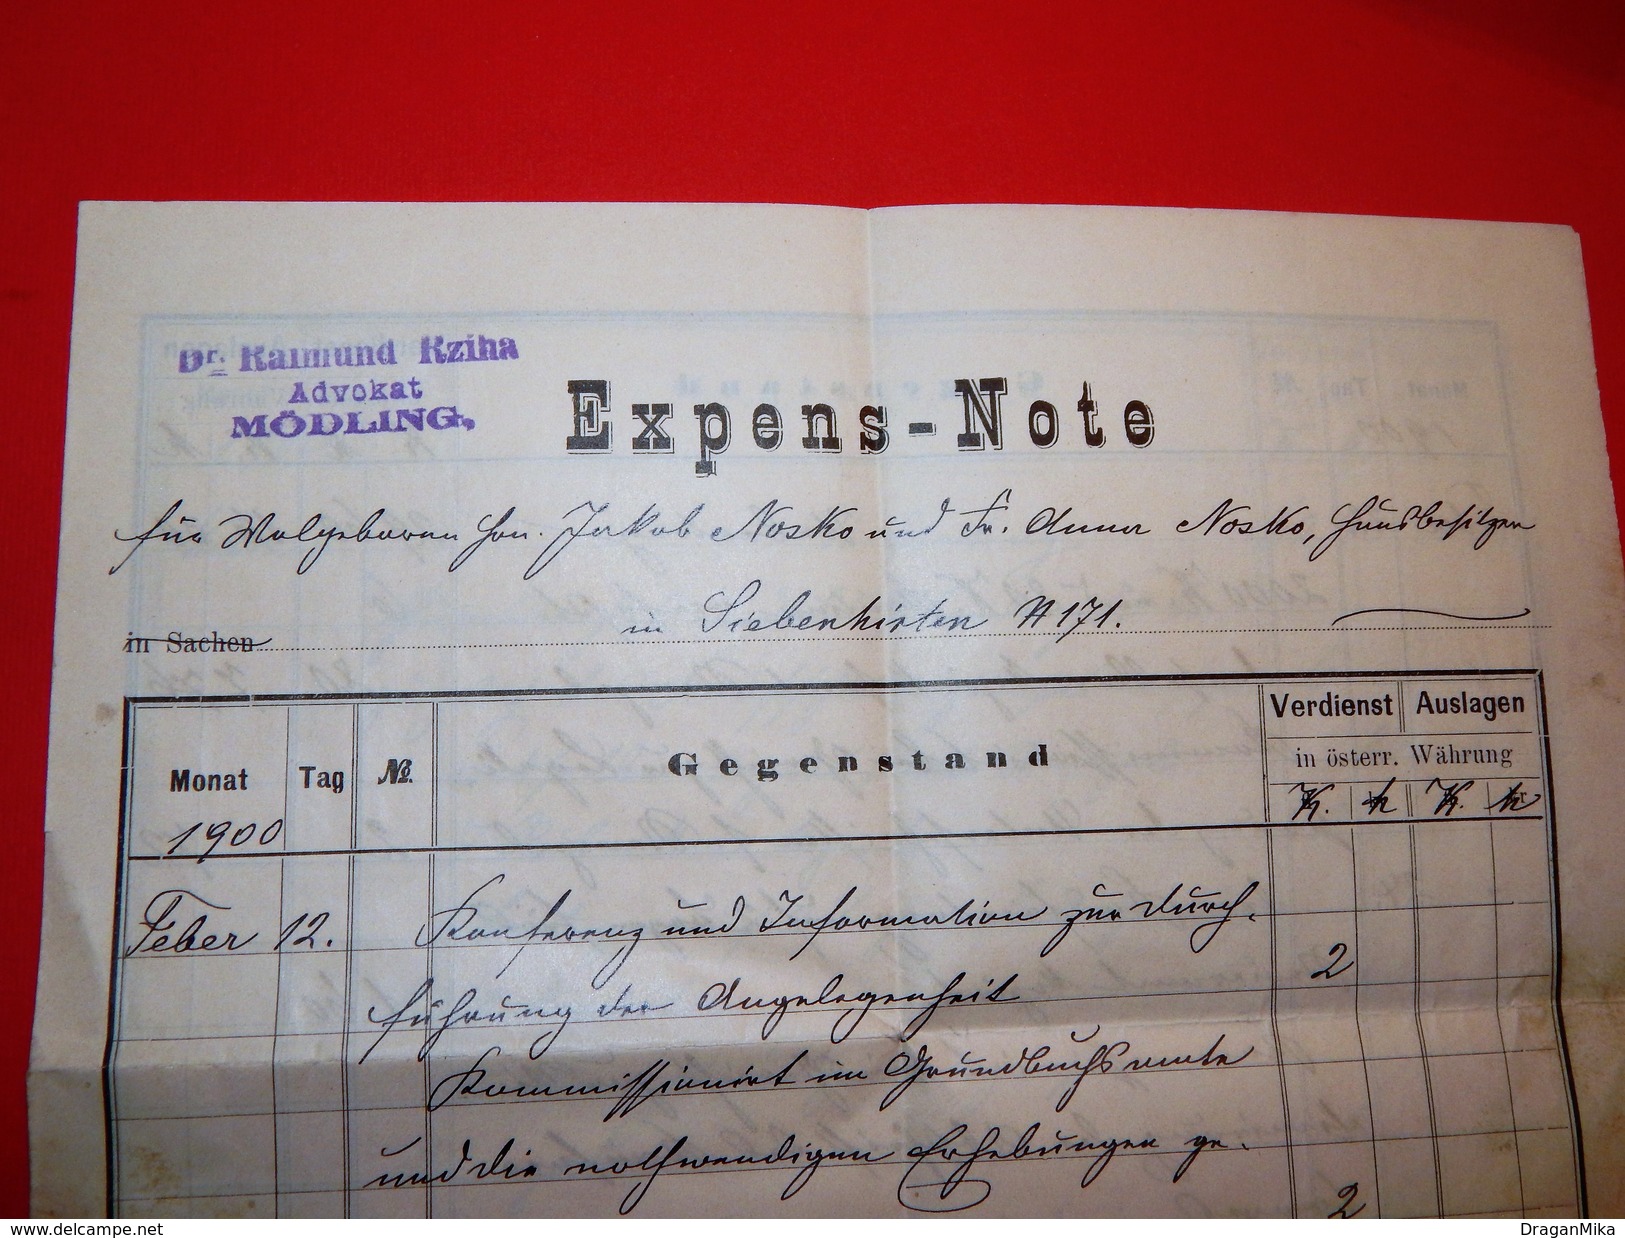 Dr. Raimund Rziha
Advokat
MÖDLING.
Expens-Note
für Wolgeboren Hrn. Jakob Nosko und Fr. Anna Nosko, Hausbesitzer
in Sachen in Siebenhirten N 171.
Verdienst Auslagen
Monat Tag No. Gegenstand in österr. Währung
K. h K. h
1900
Feber 12. Konferenz und Information zur Durch-
führung der Angelegenheit 2
Kommissionirt im Grundbuchsamte
und die nothwendigen Erhebungen ge-
2
www.delcampe.net DraganMika